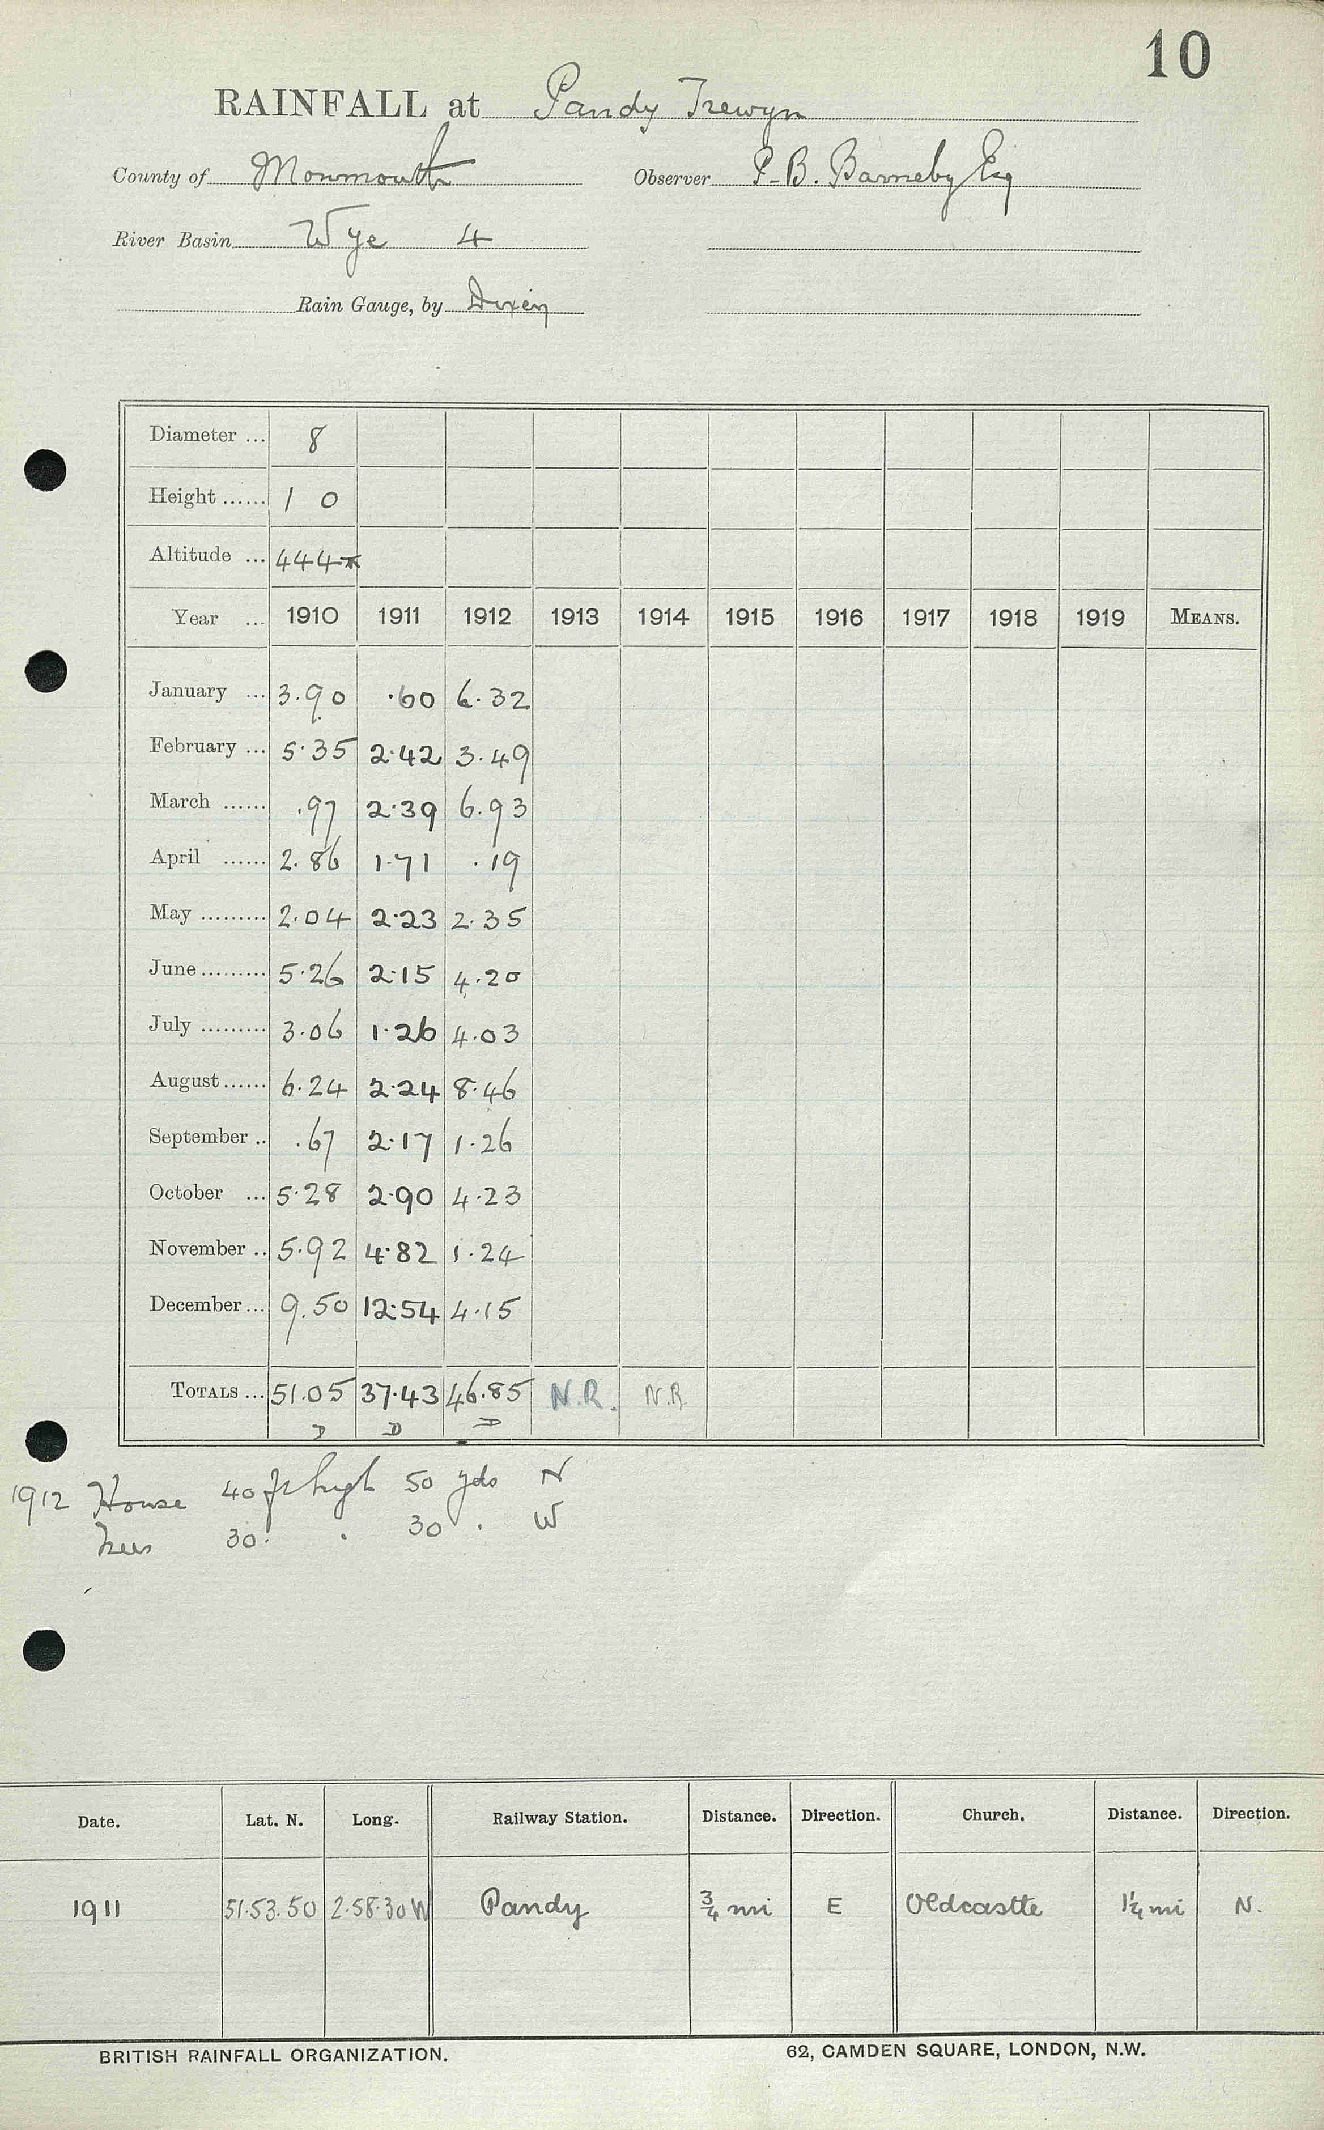 10
RAINFALL at Pandy Trewyn
County of Monmouth Observer P. B. Barneby Esq
River Basin Wye 4
Rain Gauge, by
Diameter ... 8
Height ...... 1 0
Altitude ... 444
Year ... 1910 1911 1912 1913 1914 1915 1916 1917 1918 1919 MEANS.
January ... 3.90 .60 6.32
February ... 5.35 2.42 3.49
March ...... .97 2.39 6.93
April ...... 2.86 1.71 .19
May ......... 2.04 2.23 2.35
June ......... 5.26 2.15 4.20
July ......... 3.06 1.26 4.03
August ...... 6.24 2.24 8.46
September .. .67 2.17 1.26
October ... 5.28 2.90 4.23
November .. 5.92 4.82 1.24
December ... 9.50 12.54 4.15
TOTALS ... 51.05 37.43 46.85 N.R. N.R.
D D D
1912 House 40 ft high 50 yds N
Trees 30 . 30 . W
Date. Lat. N. Long. Railway Station. Distance. Direction. Church. Distance. Direction.
1911 51.53.50 2.58.30W Pandy ¾ mi E Oldcastle 1¼ mi N.
BRITISH RAINFALL ORGANIZATION. 62, CAMDEN SQUARE, LONDON, N.W.